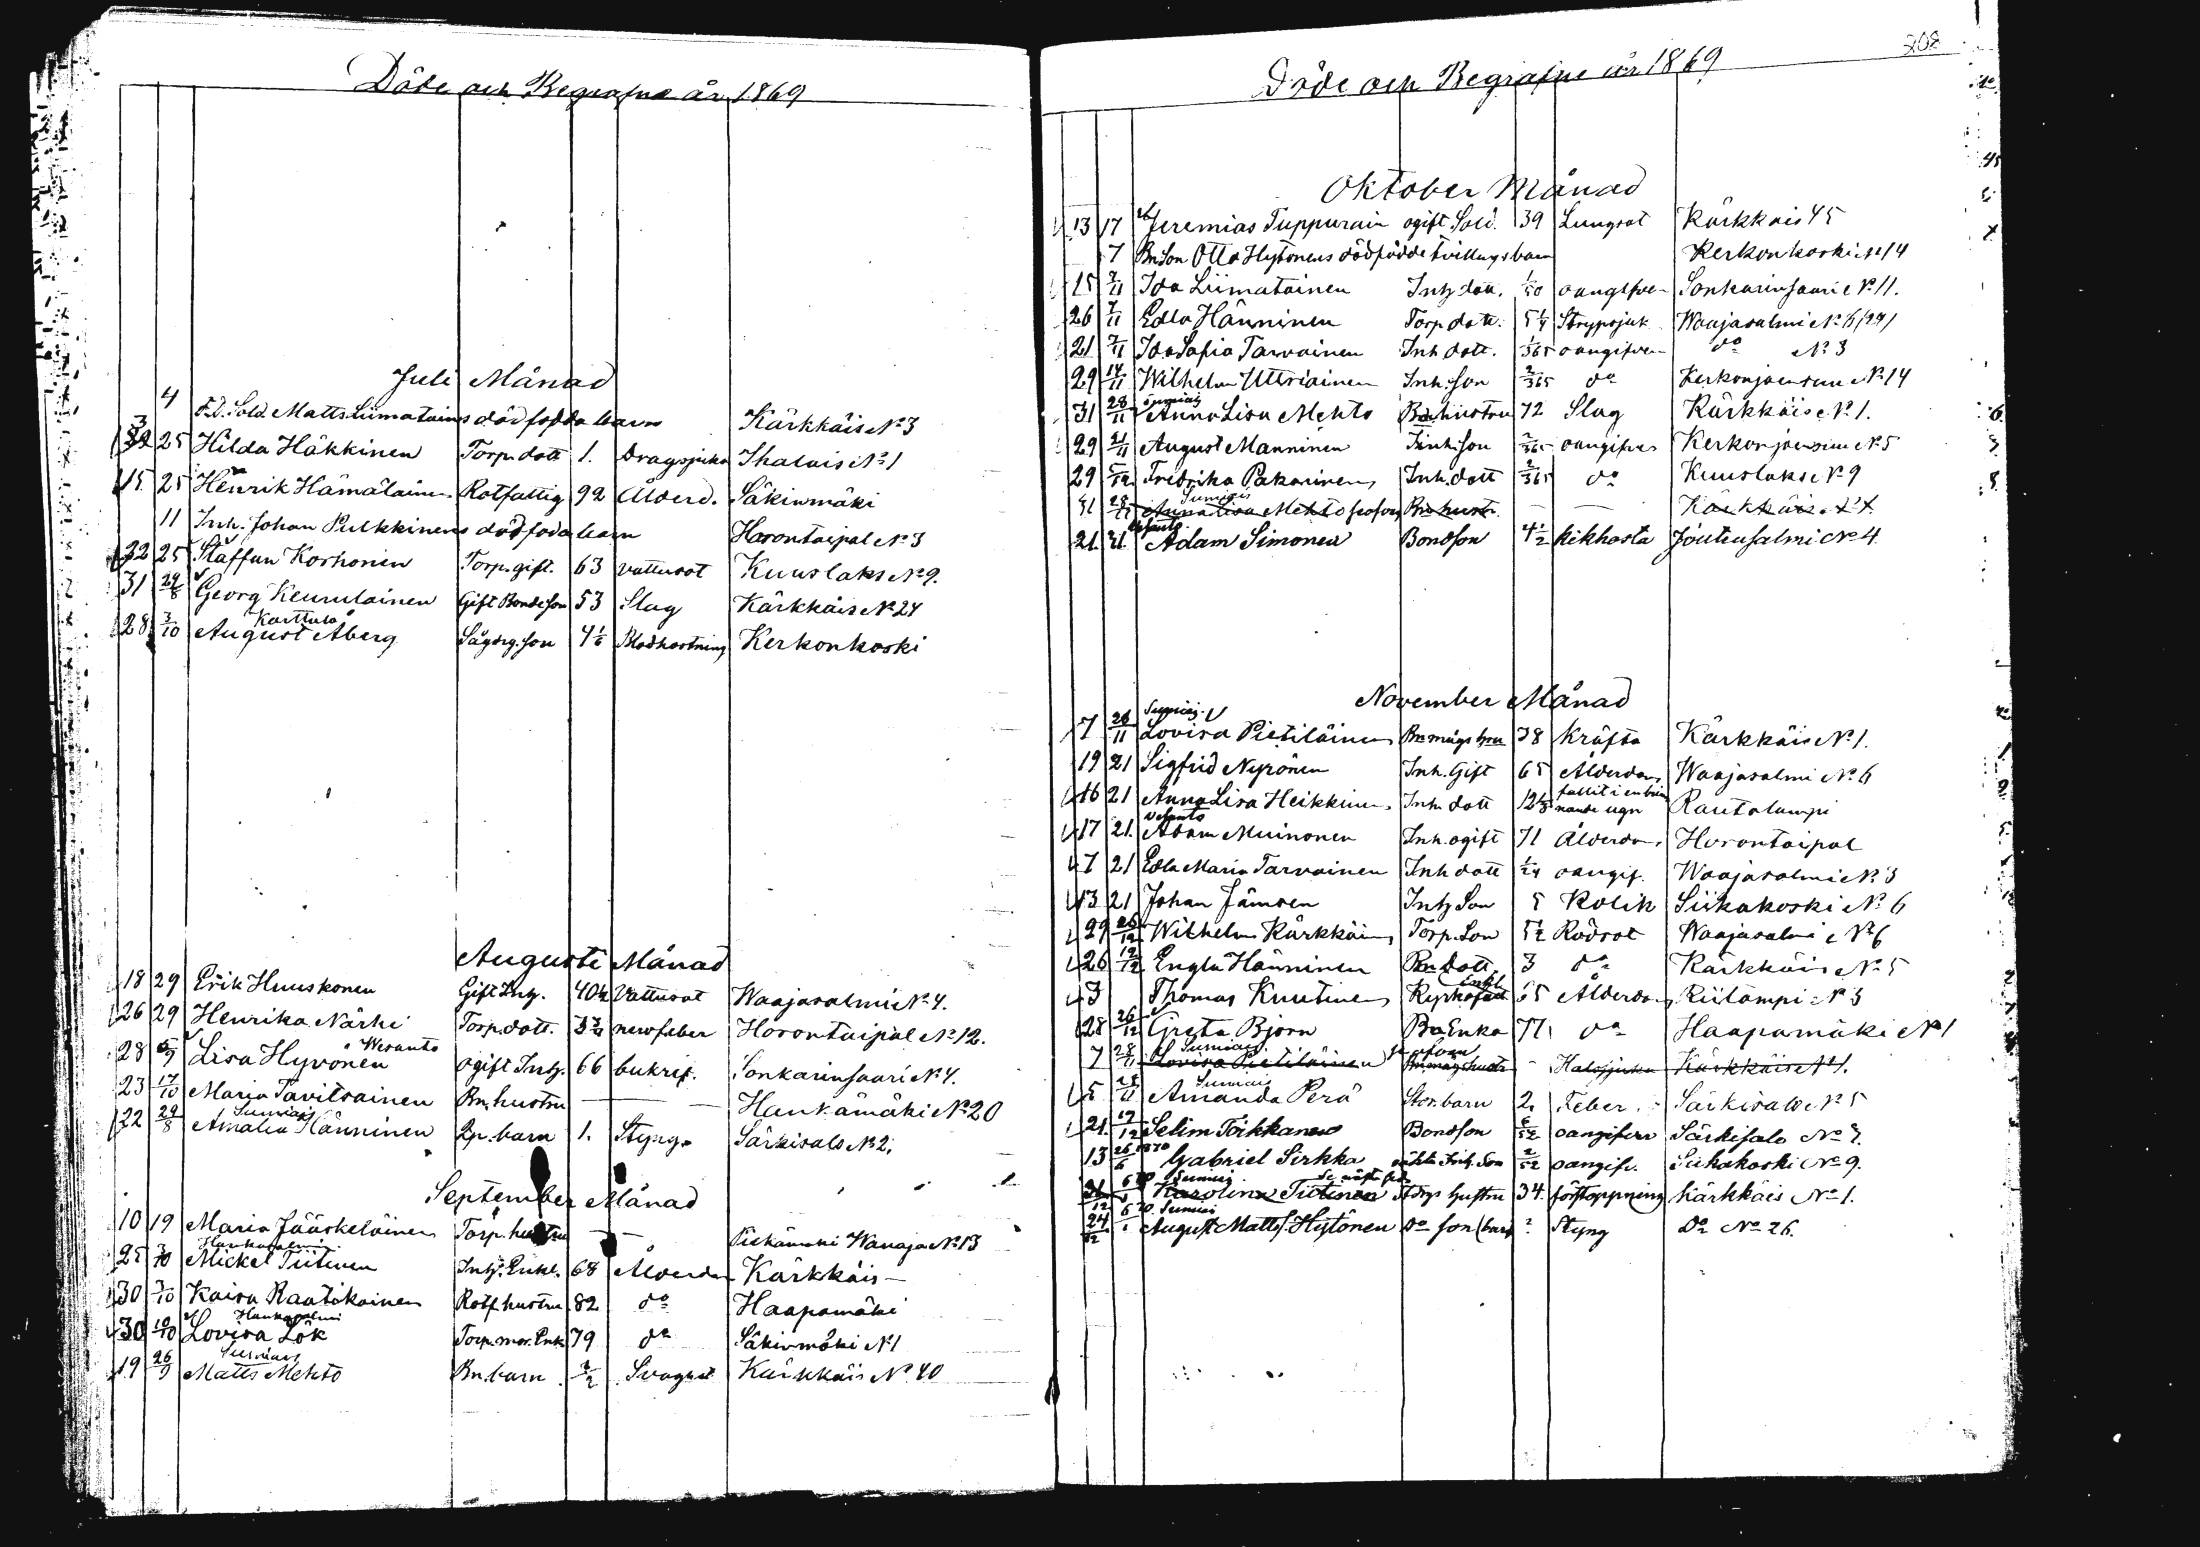 Döde och Begrafne år 1869
Juli Månad
4 F.d. Sold. Matts Liimatains dödfödda barn Kärkkäis No 3
25 Hilda Häkkinen Torp. dott 1. Dragsjuka Ihalais No 1
15. 25 Henrik Hämäläinen Rotfattig 92 Ålderd. Säkinmäki
11 Inh. Johan Pulkkinens dödfödda barn Horontaipal No 3
22 25 Staffan Korhonen Torp. gift. 63 vattusot Kuuslaks No 9.
31 29/8 Georg Keurulainen Gift Bondeson 53 Slag Kärkkäis No 24
Karttula
28 3/10 August Åberg Sågdrg. son 4 1/6 Blodhostning Kerkonkoski
Augusti Månad
18 29 Erik Huuskonen Gift Inh. 40 1/2 Vattusot Waajasalmi No 4.
26 29 Henrika Närhi Torp. dott. 3 3/4 nervfeber Horontaipal No 12.
Wesanto
28 5/9 Lisa Hyvönen ogift Inh. 66 bukref. Sonkarinsaari No 4.
23 17/10 Maria Tavitsainen Bn. hustru — — Hankamäki No 20
Sumiais
22 29/8 Amalia Hänninen Lp. barn 1. Styng. Särkisalo No 2.
September Månad
10 19 Maria Jääskeläinen Torp. hustru — — Piekämäki Wanaja No 13
Hankasalmi
25 3/10 Mickel Tiitinen Inh. Enkl. 68 Ålderdom Kärkkäis —
30 3/10 Kaisa Raatikainen Rotf. hustru 82 do Haapamäki
Hankasalmi
30 10/10 Lovisa Lök Torp. mor. Enk 79 do Säkinmäki No 1
Sumiais
19 26/9 Matts Mehto Bn. barn 1/2 Kärkkäis No 40
208
Döde och Begrafne år 1869
Oktober Månad
13 17 Jeremias Tuppurain ogift Sold. 39 Lungsot Kärkkäis 45
7 Bn. Son Otto Hytönens dödfödde tvillingsbarn Kerkonkoski No 14
15 7/11 Ida Liimatainen Inh. dott. 1/50 oangifven Sonkarinsaari No 11.
26 7/11 Edla Hänninen Torp. dott. 5 1/4 Strypsjuk Waajasalmi No 6 (24)
21 7/11 Ida Sofia Tarvainen Inh. dott. 1/365 oangifven do No 3
29 14/11 Wilhelm Uttriainen Inh. son 2/365 do Kerkonjoensuu No 14
Sumiais
31 28/11 Anna Lisa Mehto Bn. hustru 72 Slag Kärkkäis No 1.
29 21/11 August Manninen Inh. son 2/365 oangifven Kerkonjoensuu No 5
29 5/12 Fredrika Pakarinen Inh. dott 2/365 do Kuuslaks No 9
Sumiais
31 28/11 Anna Lisa Mehto se ofvan Bn. hustr. — — Kärkkäis No 1
Vesanto
21. 21. Adam Simonen Bondson 4 1/2 kikhosta Joutensalmi No 4
November Månad
Sumiais.
7 28/11 Lovisa Pietiläinen Bn. mågs hru 38 kräfta Kärkkäis No 1.
19 21 Sigfrid Nyrönen Inh. Gift 65 Ålderdom Waajasalmi No 6
16 21 Anna Lisa Heikkinen Inh. dott 12 1/3 fallit i en brin
nande ugn Rautalampi
Vesanto
17 21. Adam Muinonen Inh. ogift 71 Ålderdom. Horontaipal
7 21 Edla Maria Tarvainen Inh dott 1/24 oangif. Waajasalmi No 3
13 21 Johan Jämsen Inh. Son 5 Kolik Siikakoski No 6
29 26/12 Wilhelm Kärkkäinen Torp. Son 5 1/2 Rödsot Waajasalmi No 6
26 12/12 Engla Hänninen Bn. dott 3 do Kärkkäis No 5
Enkl.
3 Thomas Knutinen 65 Ålderdom Kiilampi No 3
28 26/12 Greta Björn Bn. Enka 77 do Haapamäki No 1
Sumiais. se ofvan
7 28/11 Lovisa Pietiläinen Bn. måg hustr. - Halssjuka Kärkkäis No 1.
Sumiais
5 28/11 Amanda Perä Stor. barn 2. Feber. Särkisalo No 5
21. 19/12 Selim Törkkänen Bondson oangifven Särkisalo No 7.
13 26/6 1870 Gabriel Sirkka oäkta Inh. Son 2/52 oangifv. Siikakoski No 9.
Sumiais
Karolina Tiitinen Torps hustru 34. förstoppning Kärkkäis No 1.
Sumiais
24/12 August Matts. Hytönen do son (barn) ? Styng do No 26.